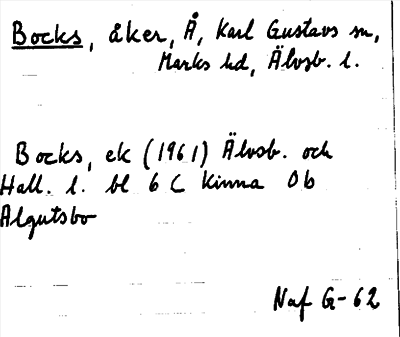 Bocks, åker, Å, Karl Gustavs sn,
Marks hd, Älvsb. l.
Bocks, ek (1961) Älvsb. och
Hall. l. bl 6 C Kinna Ob
Algutsbo
Naf G-62